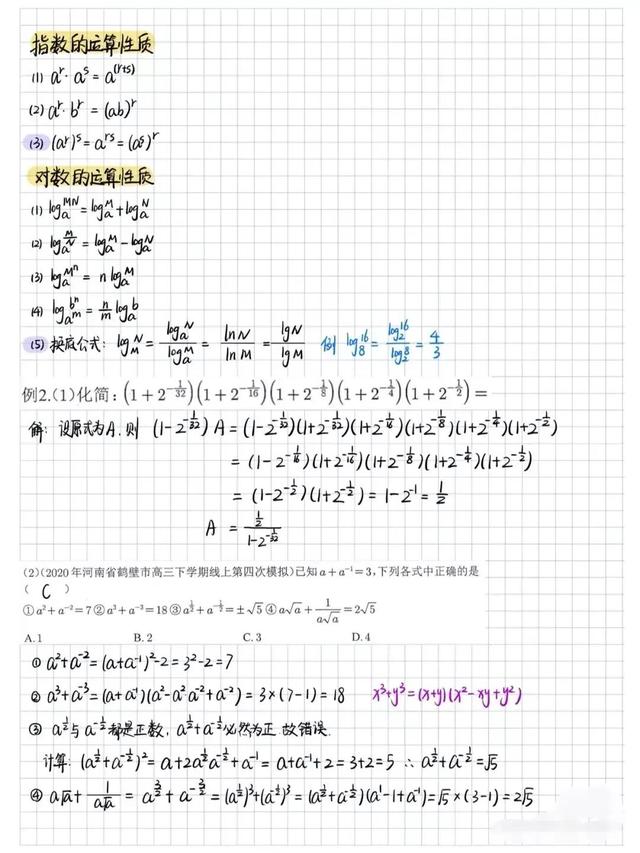 指数的运算性质
(1) aʳ·aˢ=a⁽ʳ⁺ˢ⁾
(2) aʳ·bʳ=(ab)ʳ
(3) (aʳ)ˢ=aʳˢ=(aˢ)ʳ
对数的运算性质
(1) log_a^{MN}=log_a^M+log_a^N
(2) log_a^{M/N}=log_a^M-log_a^N
(3) log_a^{Mⁿ}=n log_a^M
(4) log_{a^m}^{bⁿ}=n/m log_a^b
(5) 换底公式: log_M^N=log_a^N/log_a^M=lnN/lnM=lgN/lgM 例 log_8^16=log_2^16/log_2^8=4/3
例2.(1)化简:(1+2^{-1/32})(1+2^{-1/16})(1+2^{-1/8})(1+2^{-1/4})(1+2^{-1/2})=
解: 设原式为A.则 (1-2^{-1/32})A=(1-2^{-1/32})(1+2^{-1/32})(1+2^{-1/16})(1+2^{-1/8})(1+2^{-1/4})(1+2^{-1/2})
=(1-2^{-1/16})(1+2^{-1/16})(1+2^{-1/8})(1+2^{-1/4})(1+2^{-1/2})
=(1-2^{-1/2})(1+2^{-1/2})=1-2⁻¹=1/2
A=(1/2)/(1-2^{-1/32})
(2)(2020年河南省鹤壁市高三下学期线上第四次模拟)已知a+a⁻¹=3,下列各式中正确的是
( C )
①a²+a⁻²=7 ②a³+a⁻³=18 ③a^{1/2}+a^{-1/2}=±√5 ④a√a+1/(a√a)=2√5
A.1 B.2 C.3 D.4
① a²+a⁻²=(a+a⁻¹)²-2=3²-2=7
② a³+a⁻³=(a+a⁻¹)(a²-a²·a⁻²+a⁻²)=3×(7-1)=18 x³+y³=(x+y)(x²-xy+y²)
③ a^{1/2}与a^{-1/2}都是正数,a^{1/2}+a^{-1/2}必然为正.故错误.
计算:(a^{1/2}+a^{-1/2})²=a+2a^{1/2}a^{-1/2}+a⁻¹=a+a⁻¹+2=3+2=5 ∴a^{1/2}+a^{-1/2}=√5
④ a√a+1/(a√a)=a^{3/2}+a^{-3/2}=(a^{1/2})³+(a^{-1/2})³=(a^{1/2}+a^{-1/2})(a¹-1+a⁻¹)=√5×(3-1)=2√5